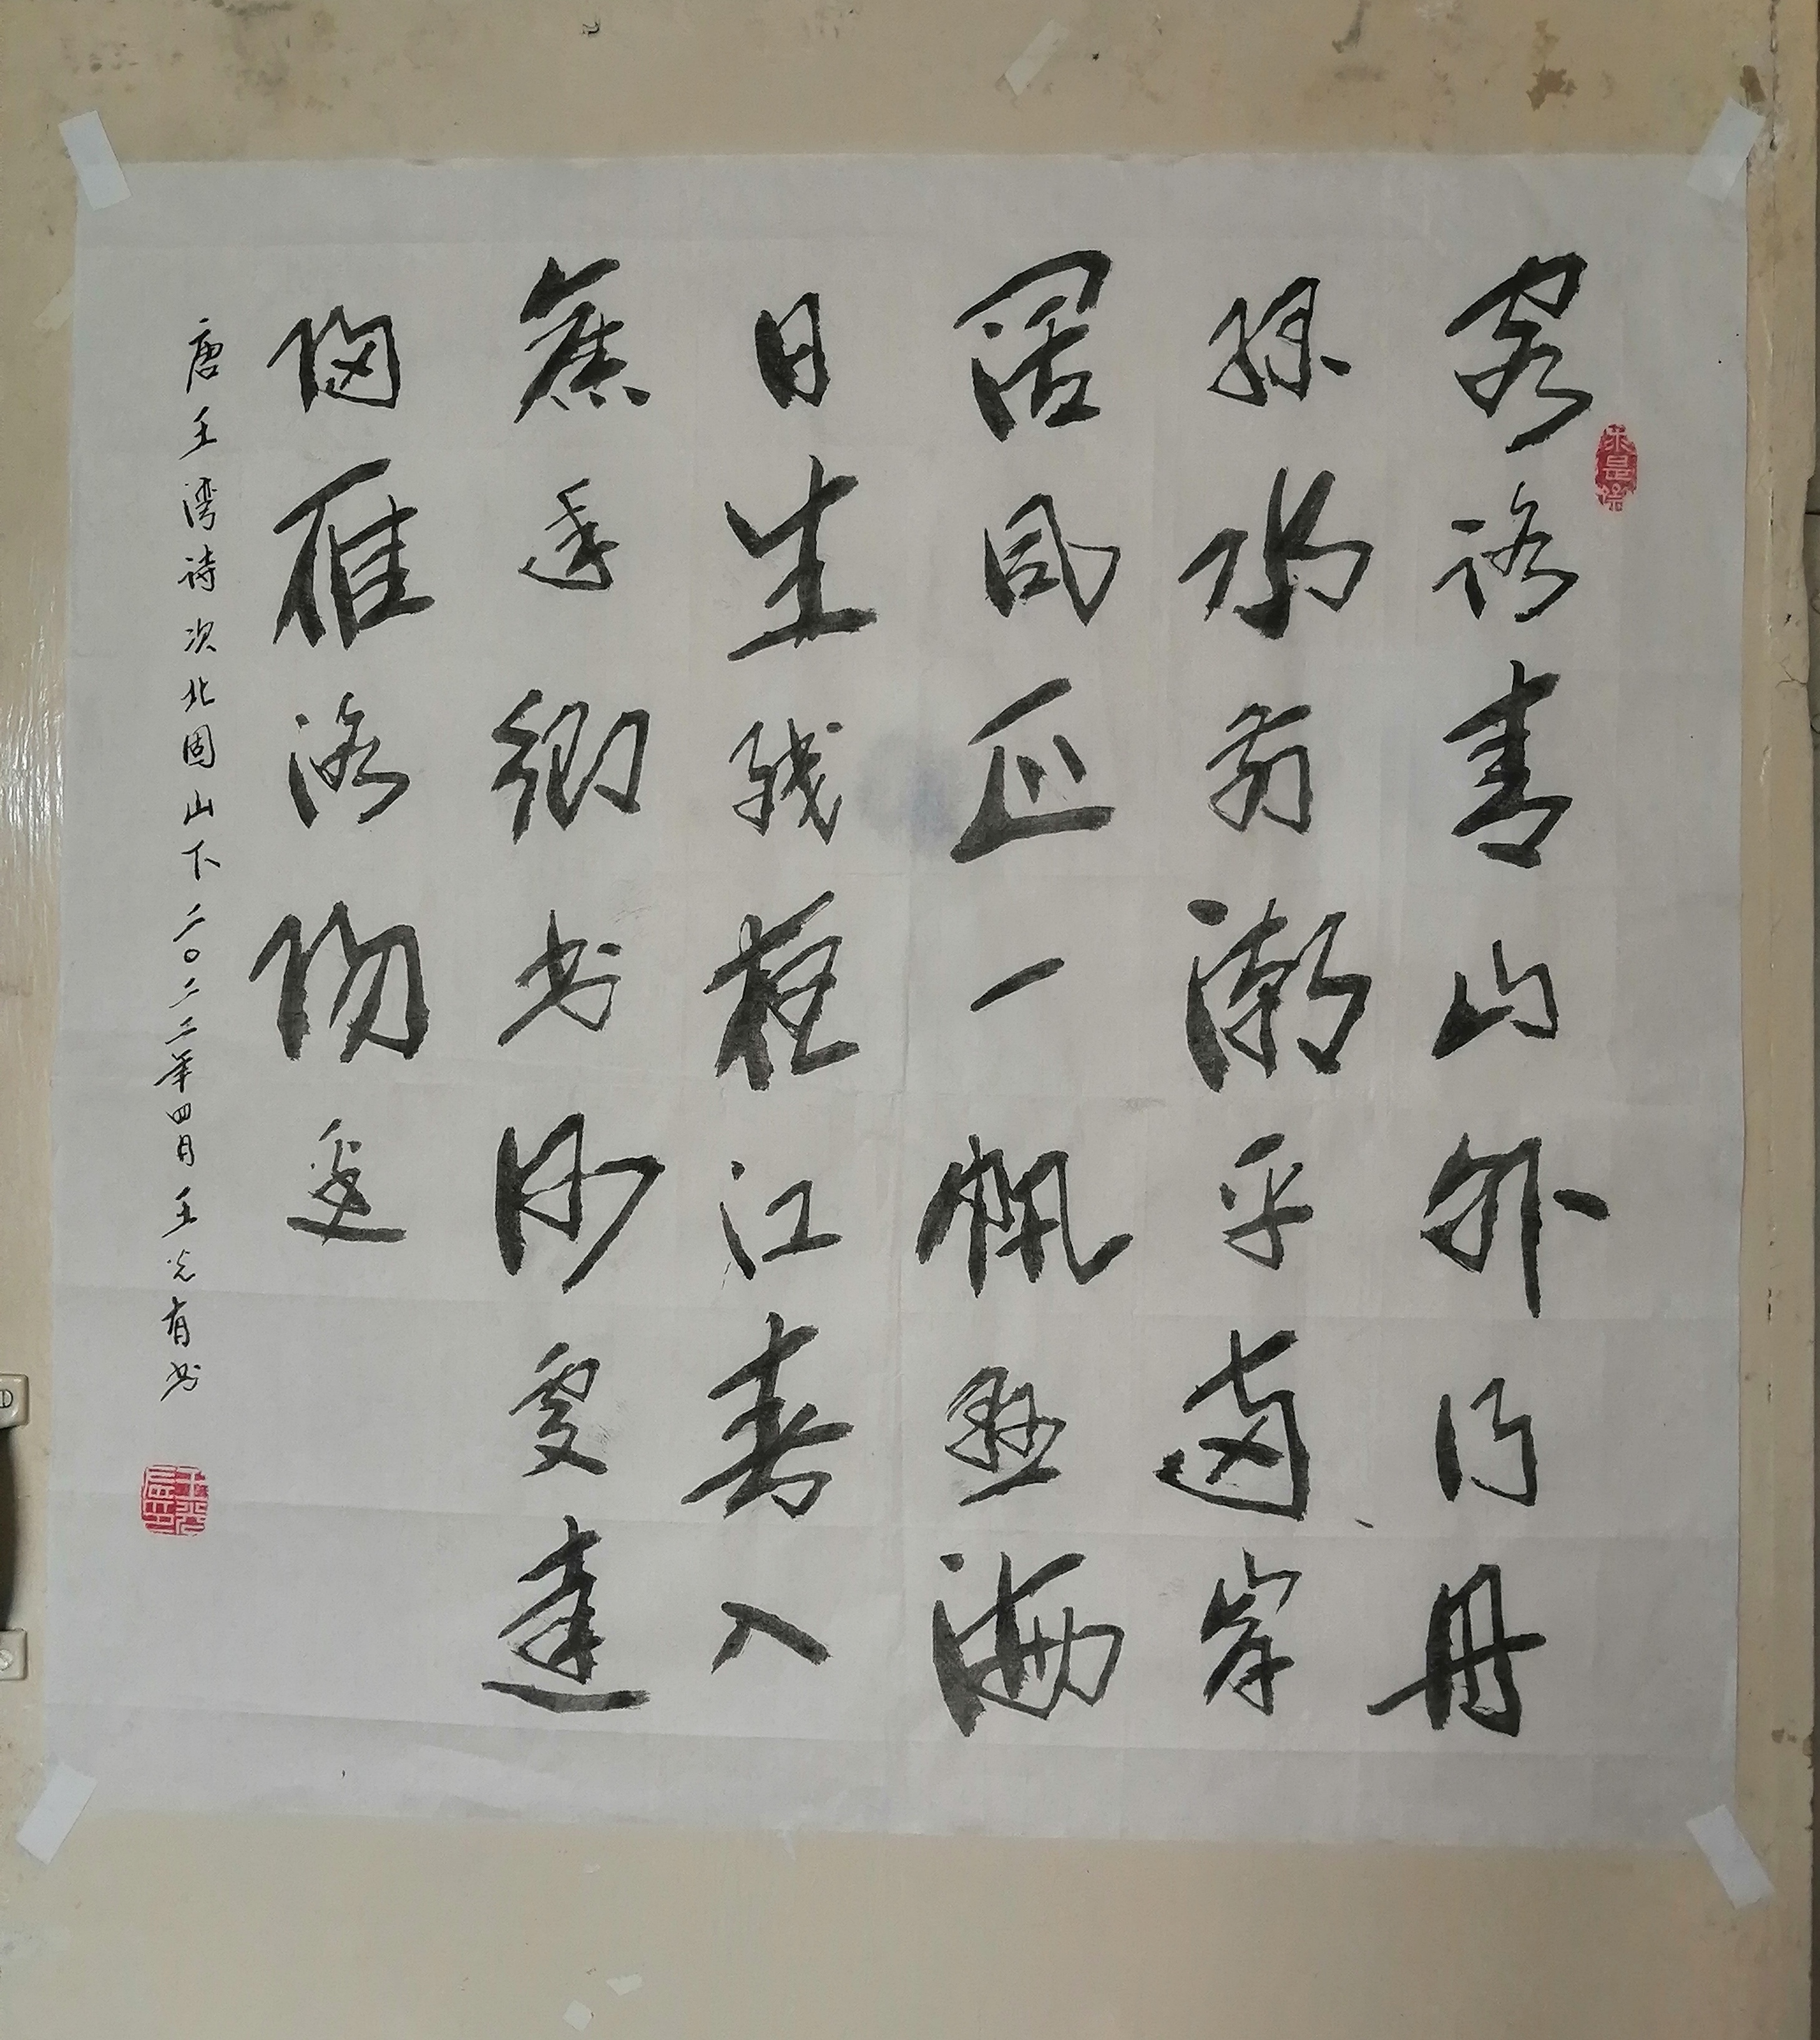 客路青山外行舟
绿水前潮平两岸
阔风正一帆悬海
日生残夜江春入
舊年鄉书何處達
归雁洛阳邊
唐王湾诗次北固山下二〇二二年四月王光有书